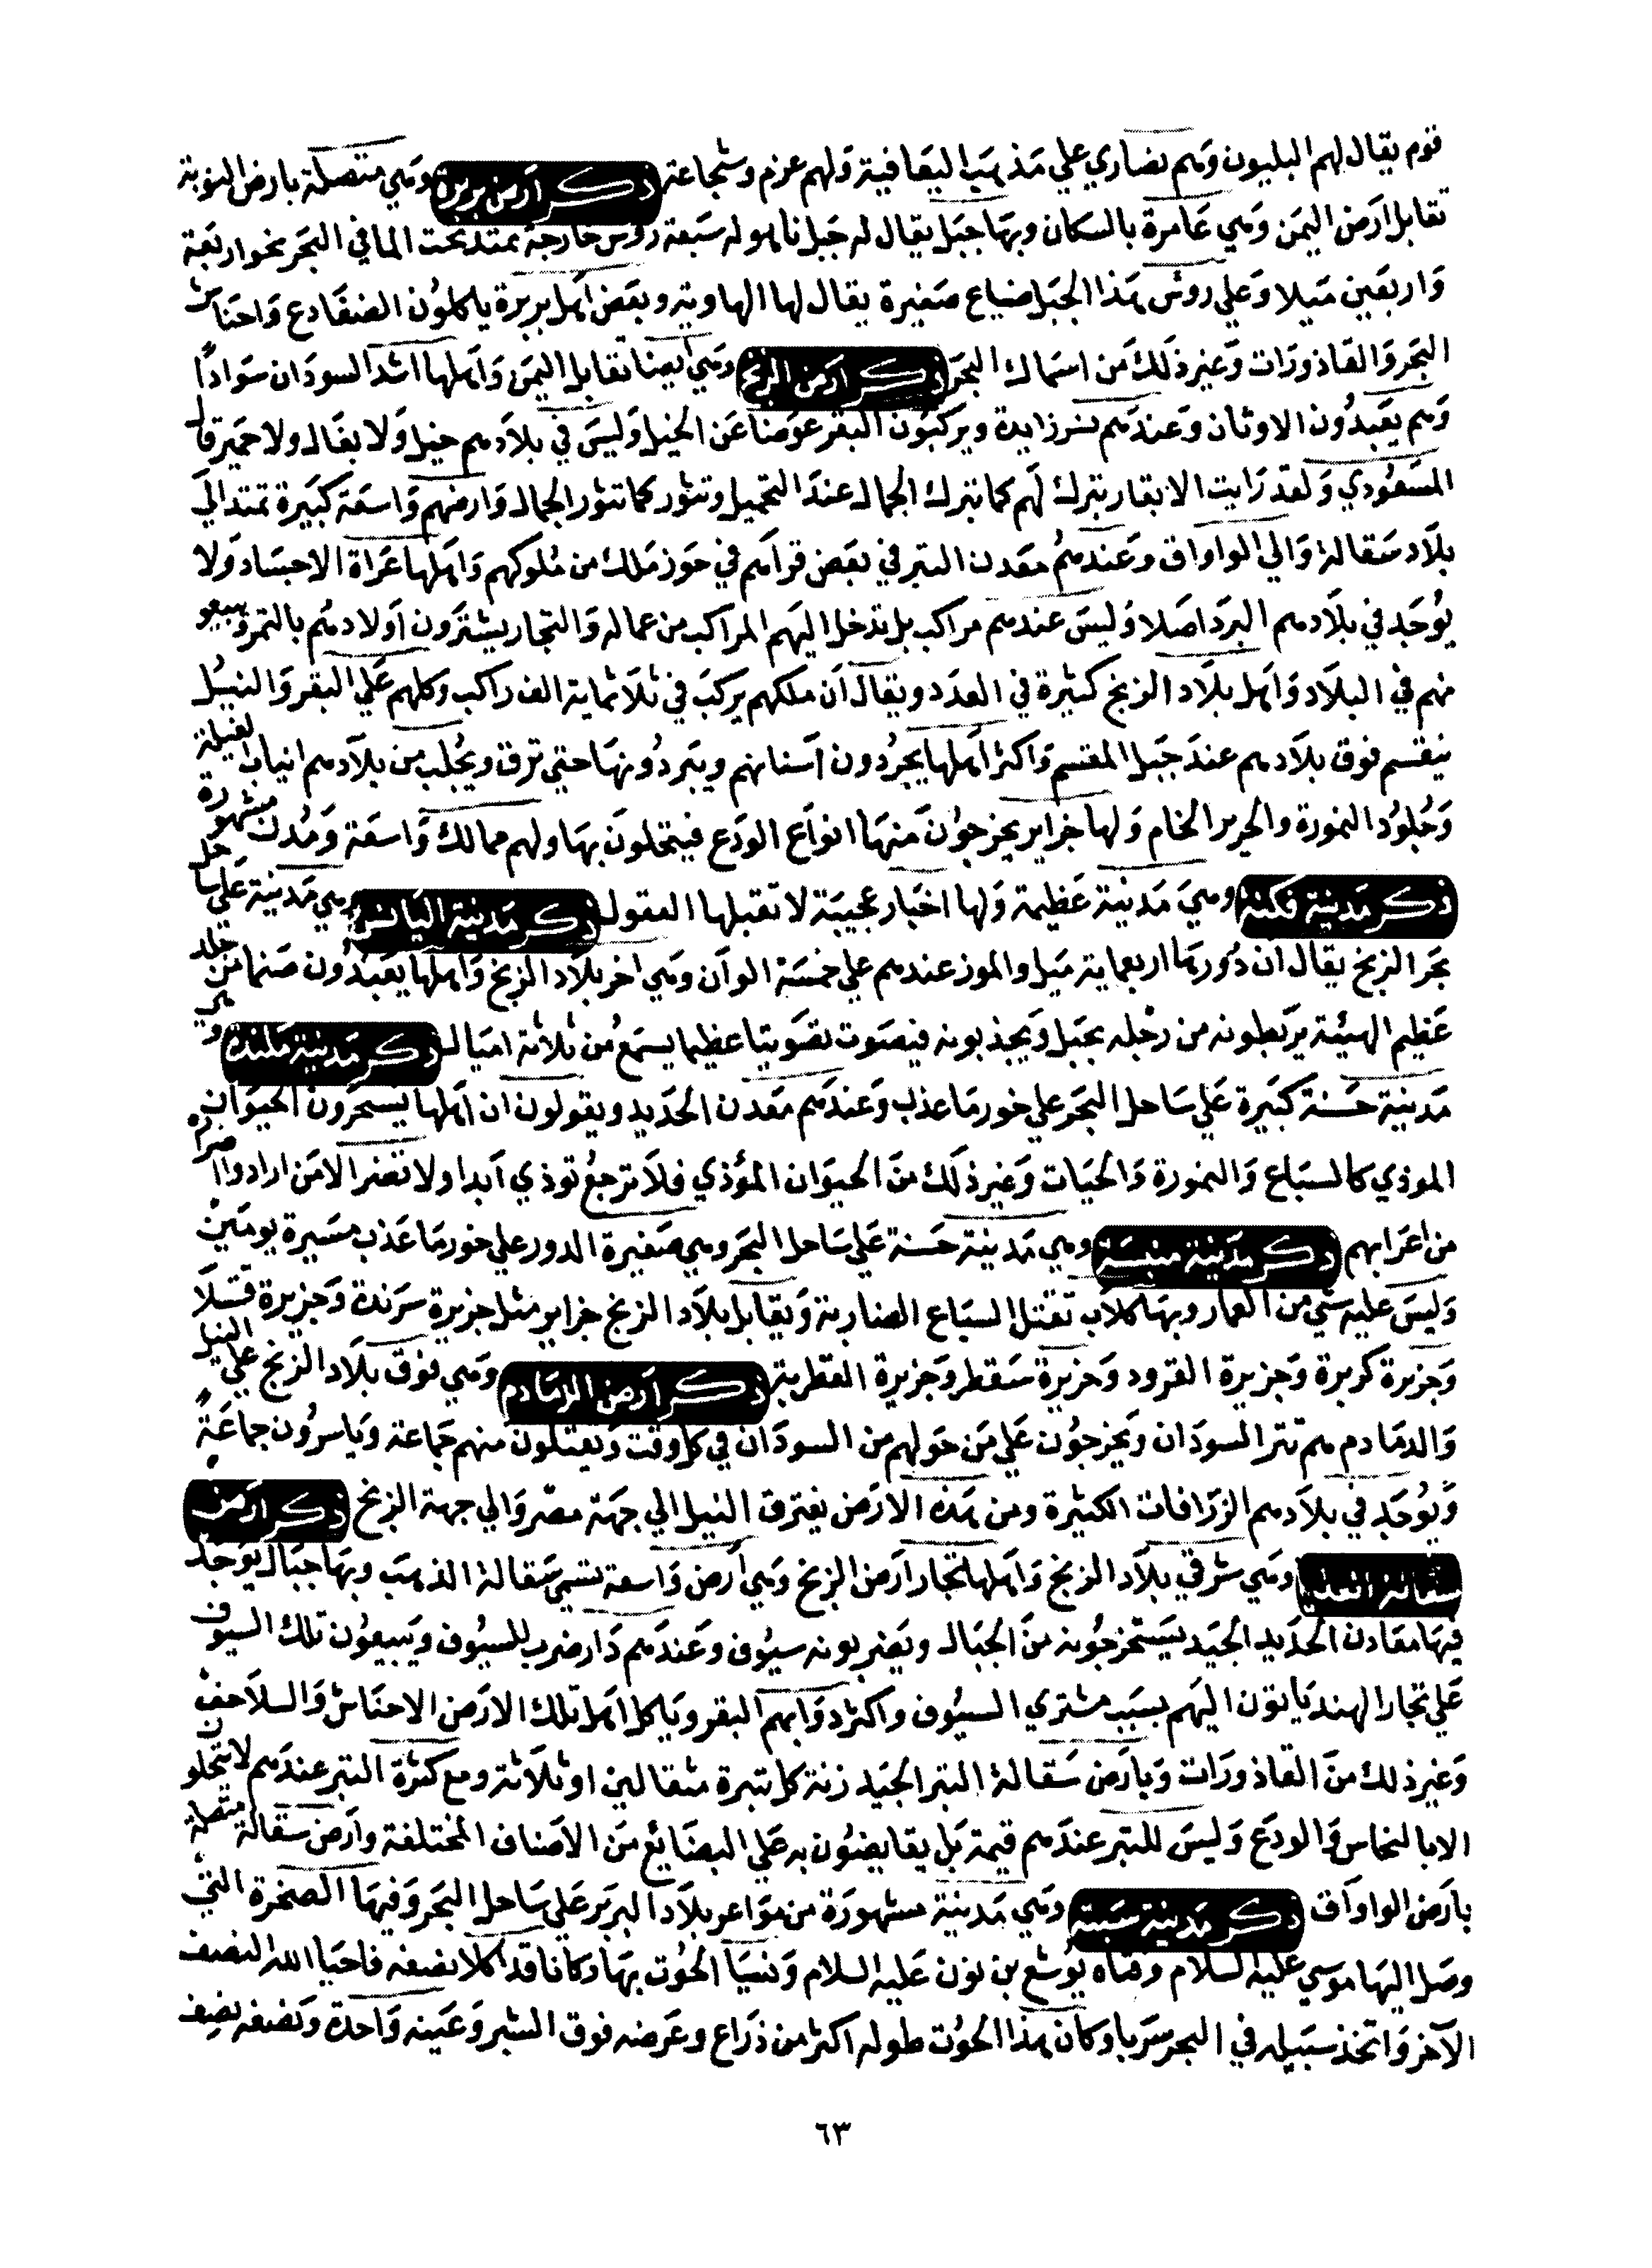 قوم يقال لهم البليون وهم نصاري علي مذهب اليعاقبة ولهم عزم وشجاعة ذكر ارض بربرة وهي متصلة بارض النوبة
تقابل ارض اليمن وهي عامرة بالسكان وبها جبل يقال له جبل نابهوله سبعة روس خارجة تمتد تحت الما في البحر نحو اربعة
واربعين ميلا وعلي روس هذا الجبل ضياع صغيرة يقال لها الهاوية وبعض اهل بربرة ياكلون الضفادع واحناش
البحر والقاذورات وغير ذلك من اسماك البحر ذكر ارض الزنج وهي ايضا تقابل اليمن واهلها اشد السودان سوادًا
وهم يعبدون الاوثان وعندهم شر زايدة ويركبون البقر عوضا عن الخيل وليس في بلادهم خيل ولا بغال ولا حمير قال
المسعودي ولقد رايت الابقار تبرك لهم كما تبرك الجمال عند التحميل وتثور كما تثور الجمال وارضهم واسعة كبيرة تمتد الي
بلاد سقالة والي الواواق وعندهم معدن التبر في بعض قراهم في حوز ملك من ملوكهم واهلها عراة الاجساد ولا
يوجد في بلادهم البرد اصلا وليس عندهم مراكب بل تدخل اليهم المراكب من عماله والتجار يشترون اولادهم بالتمر ويبيعو
نهم في البلاد واهل بلاد الزنج كثيرة في العدد ويقال ان ملكهم يركب في ثلاثماية الف راكب وكلهم علي البقر والنيل
ينقسم فوق بلادهم عند جبل المقسم واكثر اهلها يجردون اسنانهم ويبردونها حتي ترق ويجلب من بلادهم انياب الفيلة
وجلود النمورة والحرير الخام ولها جزاير يخرجون منها انواع الودع فيتحلون بها ولهم ممالك واسعة ومدن مشهورة
ذكر مدينة نكنة وهي مدينة عظيمة ولها اخبار عجيبة لا تقبلها العقول ذكر مدينة اليانس وهي مدينة علي ساحل
بحر الزنج يقال ان دورها اربعماية ميل والموز عندهم علي خمسة الوان وهي اخر بلاد الزنج واهلها يعبدون صنما من جلد
عظيم الهيئة يربطونه من رجله بحبل ويجذبونه فيصوت تصويتا عظيما يسمع من ثلاثة اميال ذكر مدينة ملندة وهي
مدينة حسنة كبيرة علي ساحل البحر علي خور ما عذب وعندهم معدن الحديد ويقولون ان اهلها يسحرون الحيوان
الموذي كالسباع والنمورة والحيات وغير ذلك من الحيوان المؤذي فلا ترجع توذي ابدا ولا تضر الا من ارادوا اضراره
من اعرابهم ذكر مدينة منبسة وهي مدينة حسنة علي ساحل البحر وهي صغيرة الدور علي خور ما عذب مسيرة يومين
وليس عليه شي من العمار وبها كلاب تقتل السباع الضارية ويقابل بلاد الزنج جزاير مثل جزيرة سرندة وجزيرة قنبلا
وجزيرة كربرة وجزيرة القرود وجزيرة سقطر وجزيرة القطربة ذكر ارض الدمادم وهي فوق بلاد الزنج علي النيل
والدمادم هم تتر السودان ويخرجون علي من حولهم من السودان في كل وقت ويقتلون منهم جماعة وياسرون جماعة
ويوجد في بلادهم الزرافات الكثيرة ومن هذه الارض يفترق النيل الي جهة مصر والي جهة الزنج ذكر ارض
سقالة وهي شرقي بلاد الزنج واهلها تجار ارض الزنج وهي ارض واسعة تسمي سقالة الذهب وبها جبال يوجد
فيها معادن الحديد الجيد يستخرجونه من الجبال ويضربونه سيوف وعندهم دار ضرب للسيوف ويبيعون تلك السيوف
علي تجار الهند ياتون اليهم بسبب مشتري السيوف واكثر دوابهم البقر وياكل اهل تلك الارض الاحناش والسلاحف
وغير ذلك من القاذورات وبارض سقالة التبر الجيد زنة كل تبرة مثقالين او ثلاثة ومع كثرة التبر عندهم لا يتحلون
الا بالنحاس والودع وليس للتبر عندهم قيمة بل يقايضون به علي البضايع من الاصناف المختلفة وارض سقالة متصلة
بارض الواواق ذكر مدينة سبتة وهي مدينة مشهورة من مواعر بلاد البربر علي ساحل البحر وفيها الصخرة التي
وصل اليها موسي عليه السلام وفتاه يوشع بن نون عليه السلام ونسيا الحوت بها وكانا قد اكلا نصفه فاحيا الله النصف
الآخر واتخذ سبيله في البحر سربا وكان هذا الحوت طوله اكثر من ذراع وعرضه فوق الشبر وعينه واحدة ونصفه نصف
٦٣